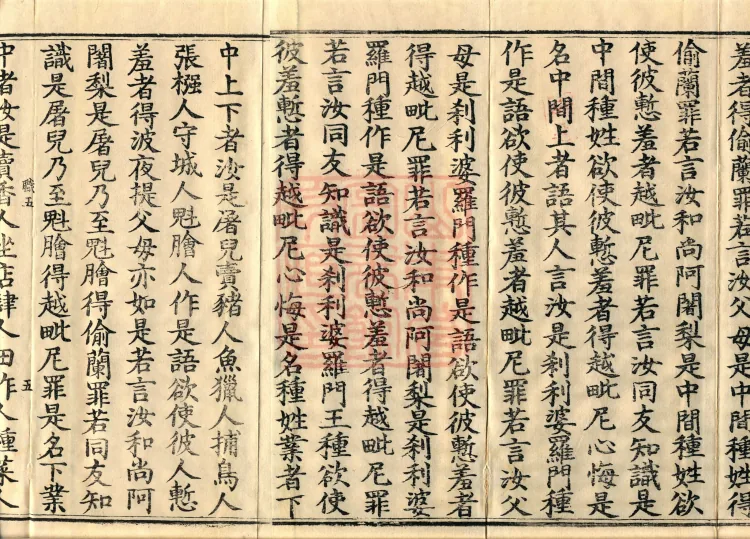 羞者得偷蘭罪若言汝父母是中間種姓得
偷蘭罪若言汝和尚阿闍梨是中間種姓欲
使彼慙羞者越毗尼罪若言汝同友知識是
中間種姓欲使彼慙羞者得越毗尼心悔是
名中間上者語其人言汝是剎利婆羅門種
作是語欲使彼慙羞者越毗尼罪若言汝父
母是剎利婆羅門種作是語欲使彼慙羞者
得越毗尼罪若言汝和尚阿闍梨是剎利婆
羅門種作是語欲使彼慙羞者得越毗尼罪
若言汝同友知識是剎利婆羅門王種欲使
彼羞慙者得越毗尼心悔是名種姓業者下
中上下者汝是屠兒賣豬人魚獵人捕鳥人
張摾人守城人魁膾人作是語欲使彼人慙
羞者得波夜提父母亦如是若言汝和尚阿
闍梨是屠兒乃至魁膾得偷蘭罪若同友知
識是屠兒乃至魁膾得越毗尼罪是名下業
職五 五
中者汝是賣香人坐店肆人田作人種菜人